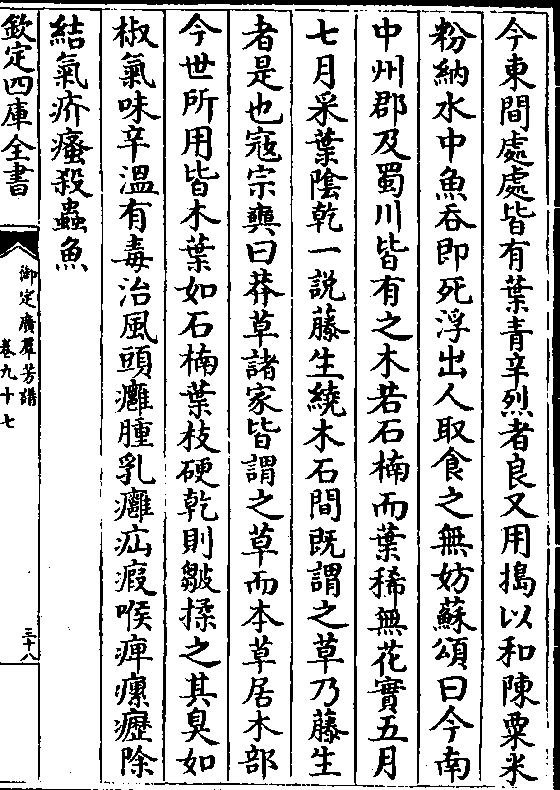 今東間處處皆有葉青辛烈者良又用搗以和陳粟米
粉納水中魚吞即死浮出人取食之無妨蘇頌曰今南
中州郡及蜀川皆有之木若石楠而葉稀無花實五月
七月采葉隂乾一説藤生繞木石間既謂之草乃藤生
者是也寇宗奭曰莽草諸家皆謂之草而本草居木部
今世所用皆木葉如石楠葉枝硬乾則皺揉之其臭如
椒氣味辛溫有毒治風頭癰腫乳癰疝瘕喉痺瘰癧除
結氣疥瘙殺蟲魚
欽定四庫全書
御定廣羣芳譜
卷九十七
三十八